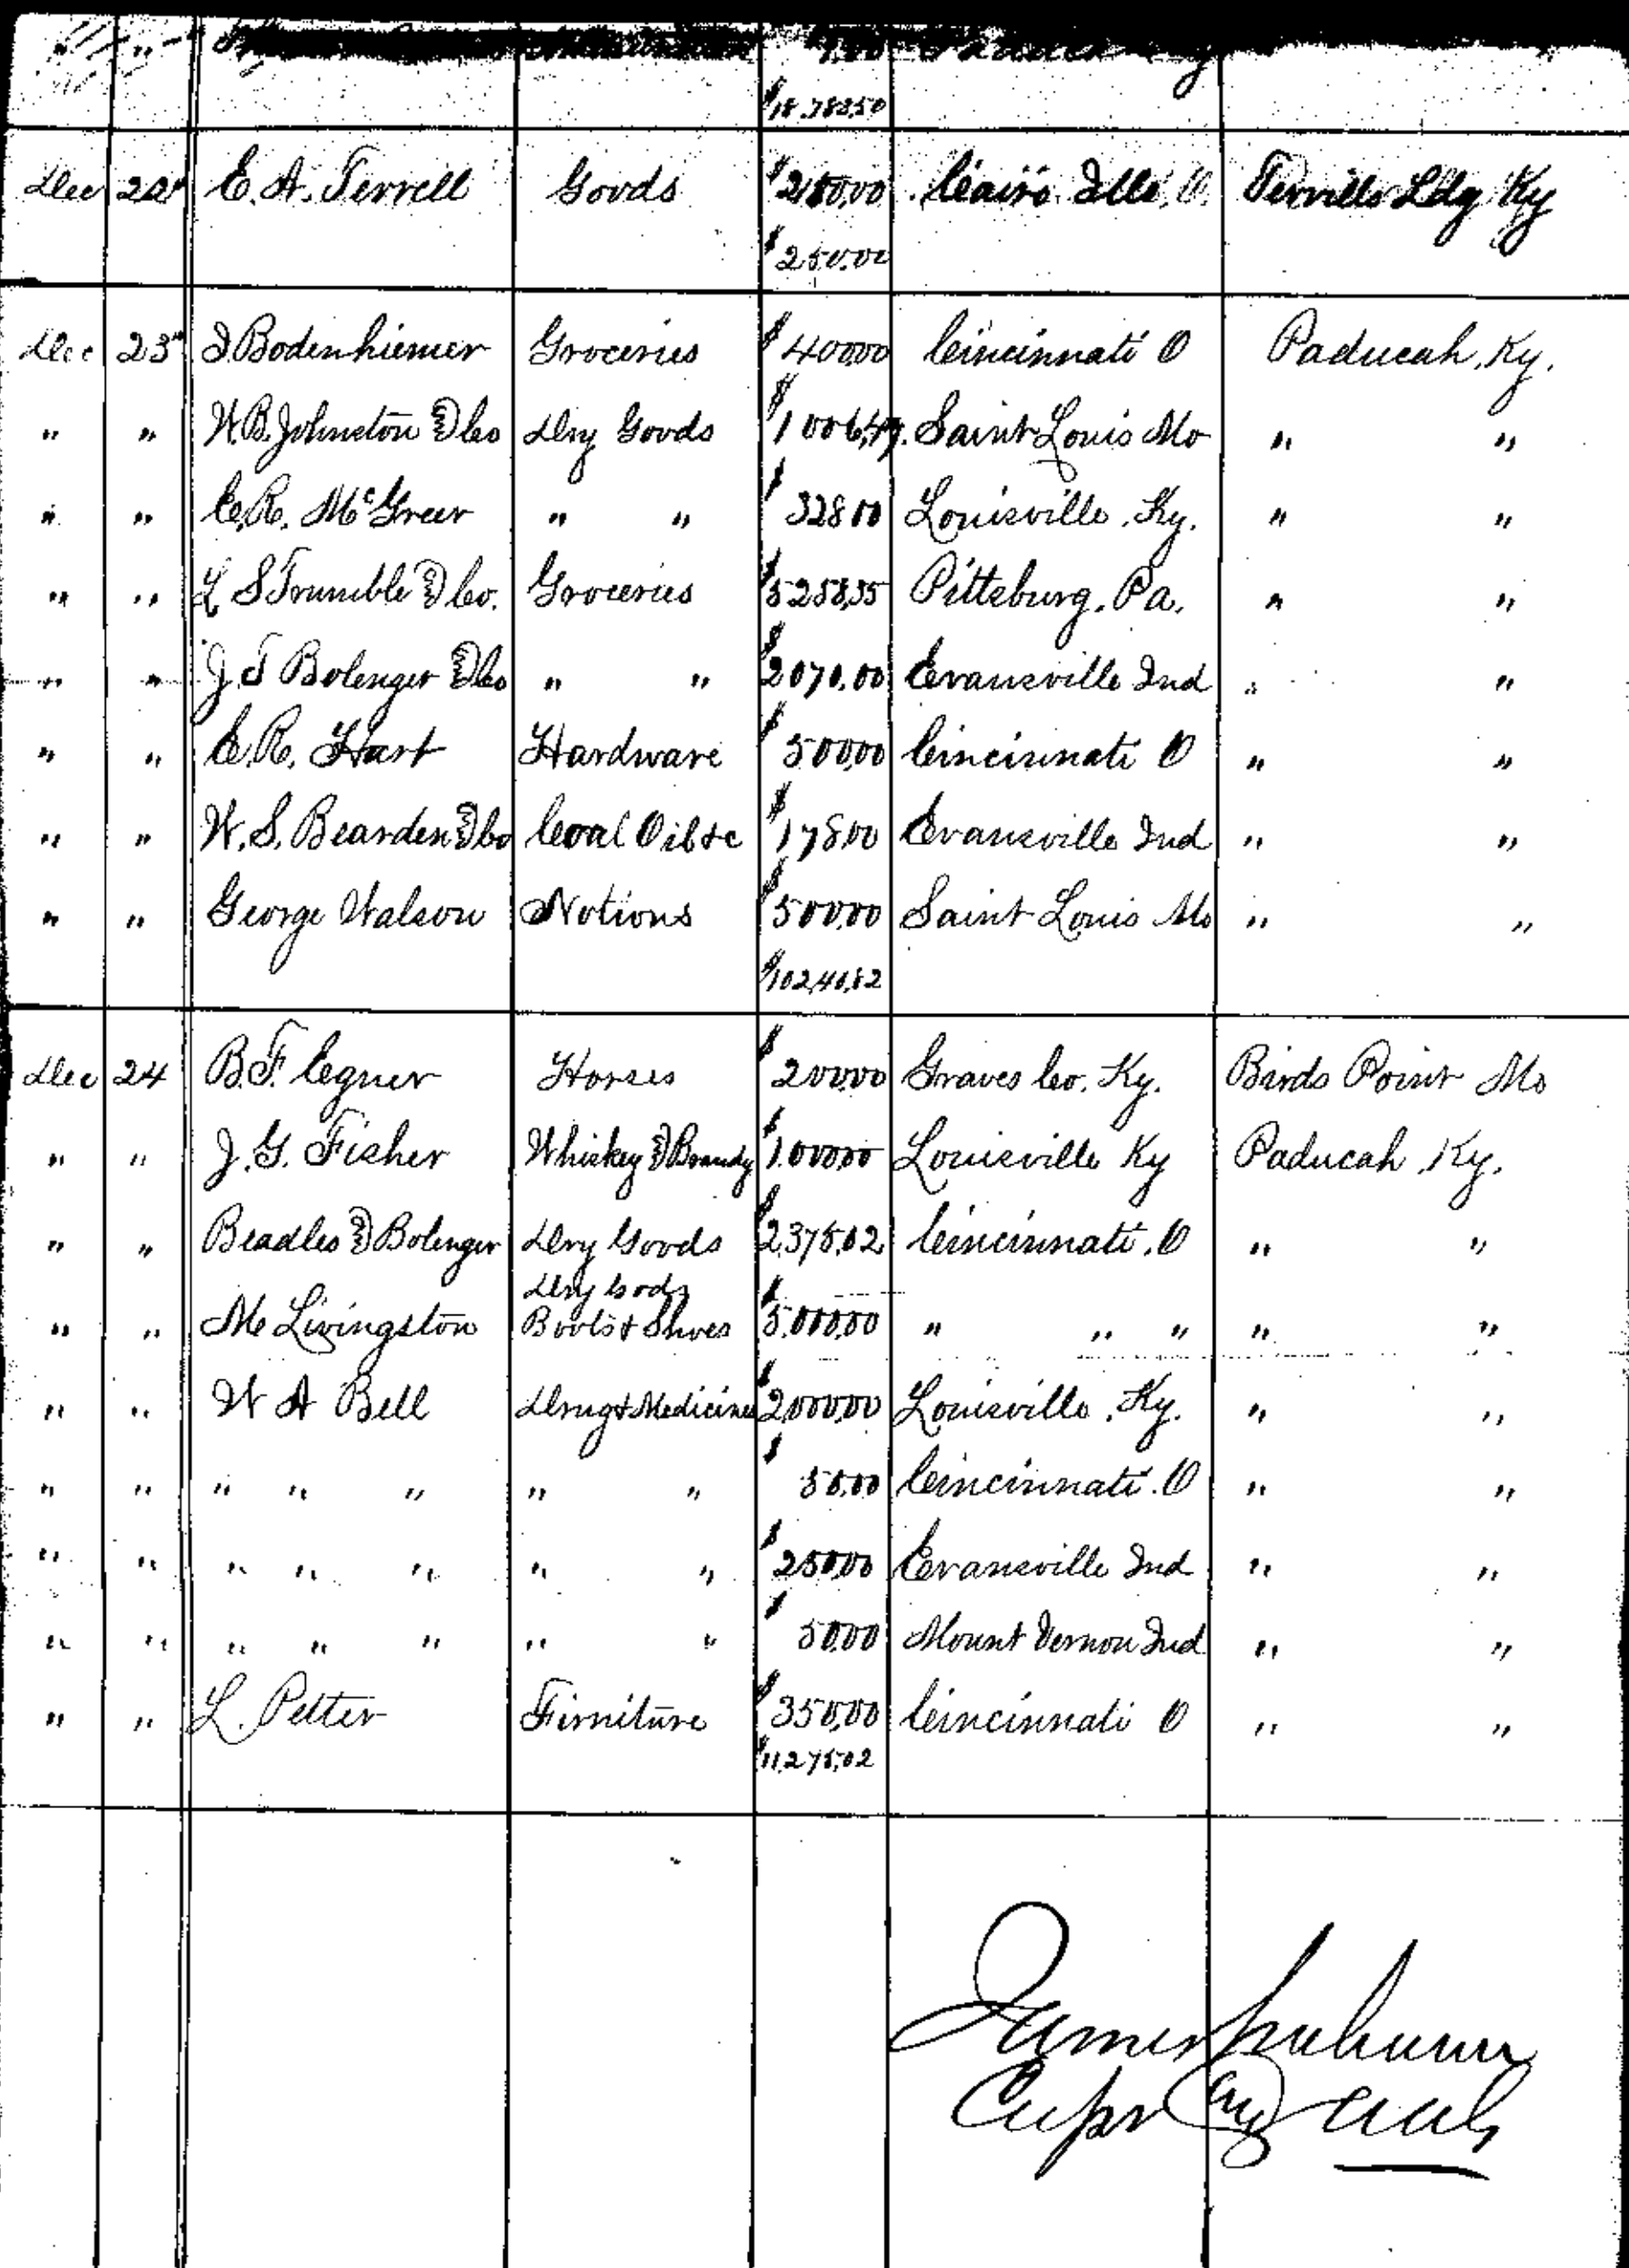 " "
$18,782.50
Dec 22d E. A. Terrell Goods $250.00 Cairo Ills. Terrills Ldg Ky
$250.00
Dec 23d I. Bodenhiemer Groceries $400.00 Cincinnati O Paducah, Ky.
" " W. B. Johnston & Co Dry Goods $1006,47. Saint Louis Mo " "
" " C. R. McGreer " " $328 00 Louisville, Ky. " "
" " L S Trumble & Co. Groceries $5258,35 Pittsburg, Pa. " "
" " J. T Bolenger & Co " " $2070.00 Evansville Ind " "
" " C. R. Hart Hardware $500,00 Cincinnati O " "
" " W. S. Bearden & Co Coal Oil &c $178.00 Evansville Ind " "
" " George Walson Notions $500,00 Saint Louis Mo " "
$10240,82
Dec 24 B. F. Cegner Horses $200.00 Graves Co. Ky. Birds Point Mo
" " J. G. Fisher Whiskey & Brandy $1.000.00 Louisville Ky Paducah, Ky.
" " Beadles & Bolenger Dry Goods $2,375,02 Cincinnati, O " "
Dry Gods
" " M Livingston Boots & Shoes $5.000,00 " " " " "
" " W A Bell Drug & Medicines $2,000,00 Louisville, Ky. " "
" " " " " " " $50,00 Cincinnati. O " "
" " " " " " " $250,00 Evansville Ind " "
" " " " " " " $50.00 Mount Vernon Ind " "
" " L. Petter Firniture $350,00 Cincinnati O " "
$11,275,02
James